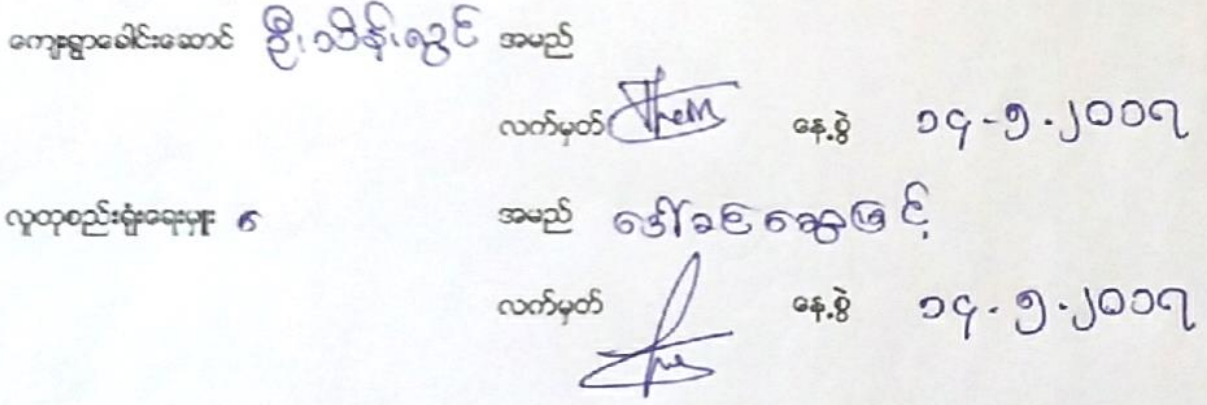 ကျေးရွာခေါင်းဆောင် ဦးသိန်းလွင် အမည်
လက်မှတ် နေ့စွဲ ၁၄-၅-၂၀၁၇
လူထုစည်းရုံးရေးမှူး အမည် ဒေါ်ခင်ဆွေမြင့်
လက်မှတ် နေ့စွဲ ၁၄-၅-၂၀၁၇